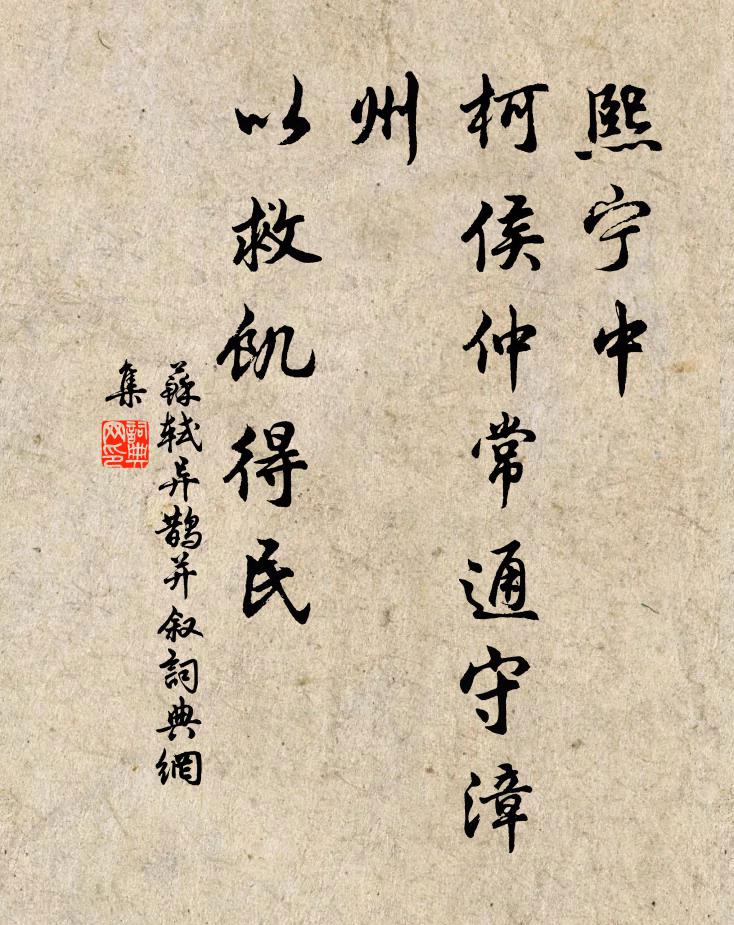 熙宁中
柯侯仲常通守漳
州
以救飢得民
蘇轼异鹊并叙詞典網
集
詞典
网印